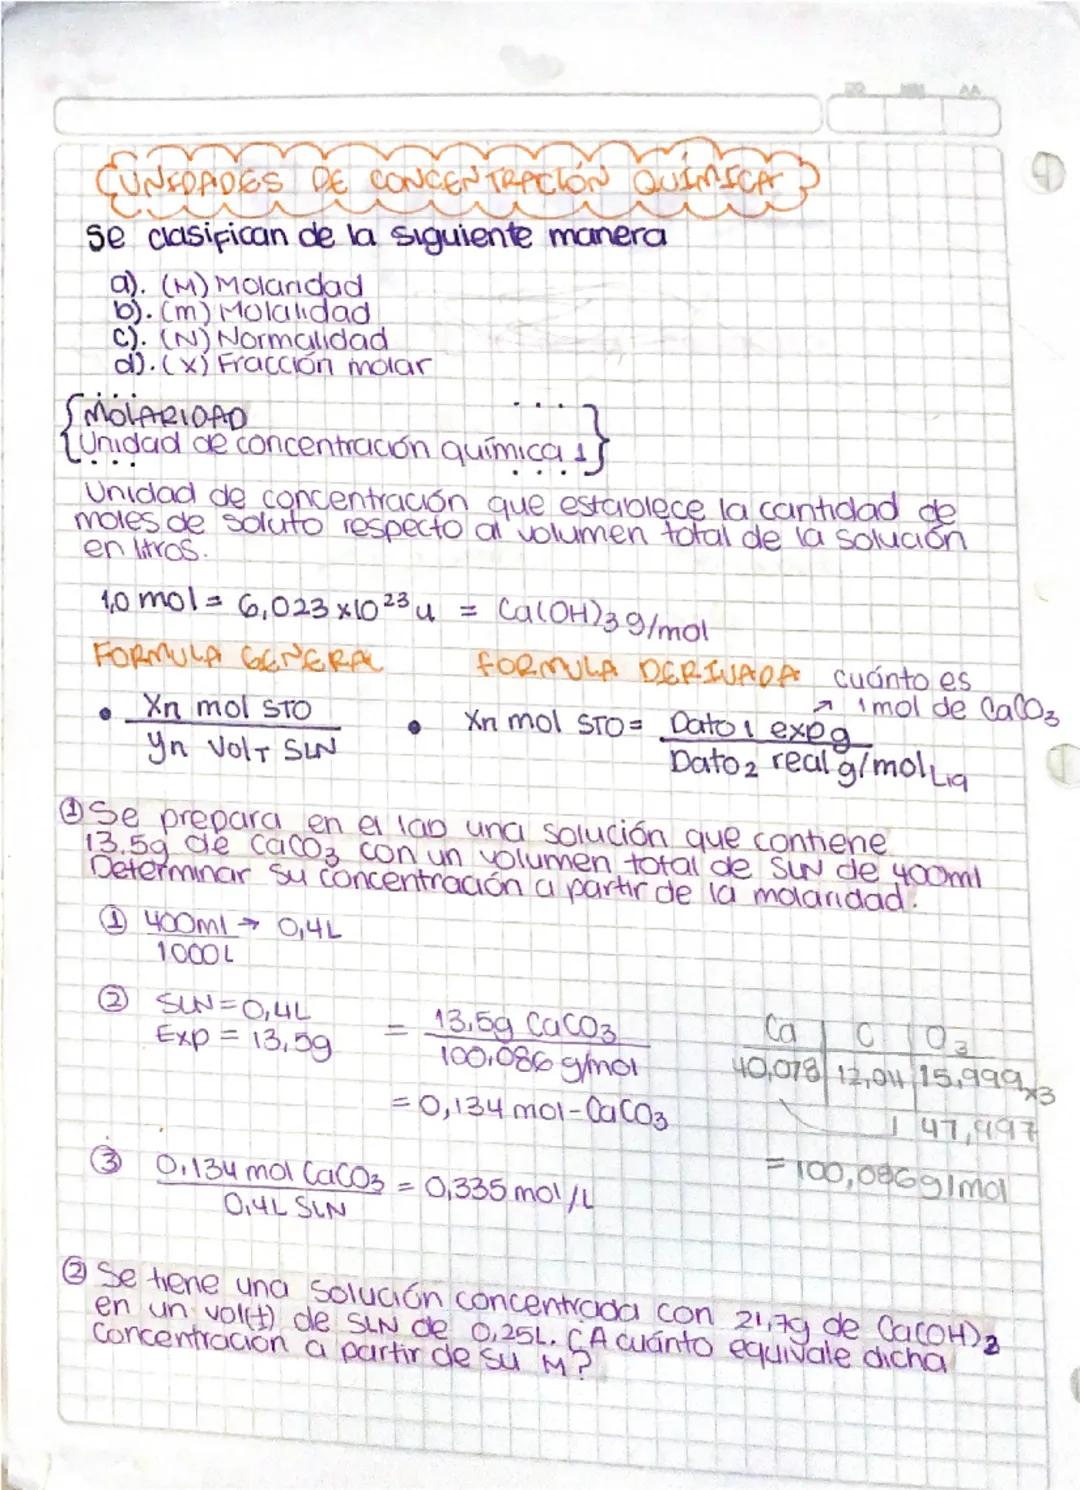 UNIDADES DE CONCENTRACIÓN QUÍMICA
Se clasifican de la siguiente manera
a). (M) Molaridad
b). (m) Molalidad
c). (N) Normalidad
d). (x) Fracción molar
MOLARIDAD
Unidad de concentración química 1
Unidad de concentración que establece la cantidad de
moles de soluto respecto al volumen total de la solución
en litros.
1,0 mol = 6,023 x10²³ u = Ca(OH)3 g/mol
FORMULA GENERAL FORMULA DERIVADA cuánto es
1 mol de CaCO3
• Xn mol STO • Xn mol STO = Dato 1 exp g
Yn VolT SLN Dato 2 real g/mol Liq
① Se prepara en el lab una solución que contiene
13.5g de CaCO3 con un volumen total de SLN de 400ml
Determinar su concentración a partir de la molaridad.
① 400ml → 0,4L
1000L
② SLN = 0,4L = 13,5g CaCO3 Ca C O3
Exp = 13,5g 100,086 g/mol 40,078 12,011 15,999 x3
= 0,134 mol-CaCO3 47,997
③ 0,134 mol CaCO3 = 0,335 mol/L = 100,086 g/mol
0,4L SLN
② Se tiene una solución concentrada con 21,7g de Ca(OH)2
en un vol(t) de SLN de 0,25L. ¿A cuánto equivale dicha
concentración a partir de su M?